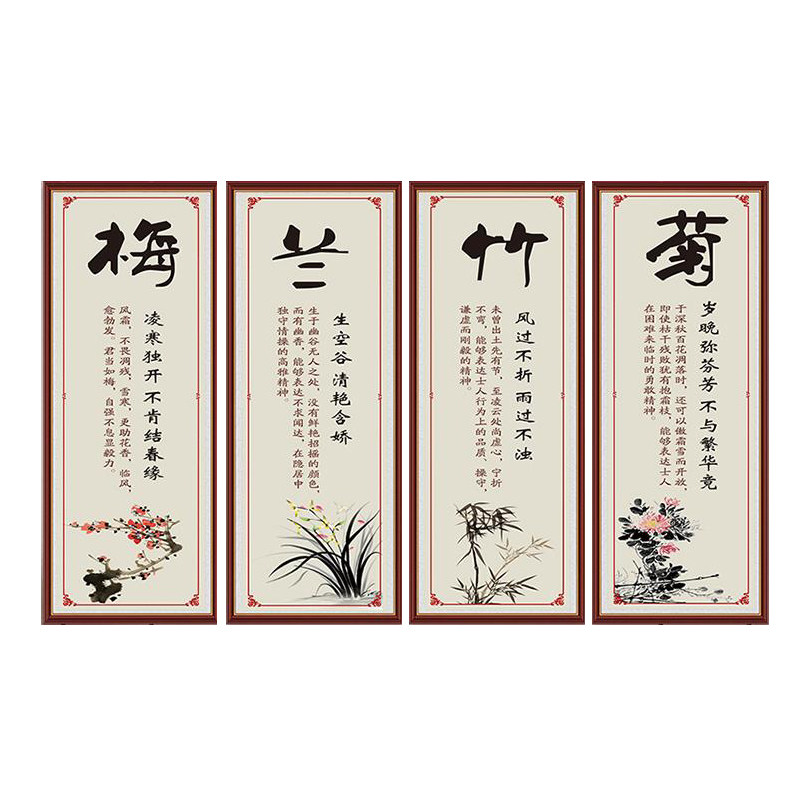 梅
凌寒独开不肯结春缘
风霜，不畏凋残，雪寒，更助花香，临风，
愈勃发。君当如梅，自强不息显毅力。
兰
生空谷清艳含娇
生于幽谷无人之处，没有鲜艳招摇的颜色，
而有幽香，能够表达不求闻达，在隐居中
独守情操的高雅精神。
竹
风过不折雨过不浊
未曾出土先有节，至凌云处尚虚心，宁折
不弯，能够表达士人行为上的品质、操守，
谦虚而刚毅的精神。
菊
岁晚弥芬芳不与繁华竞
于深秋百花凋落时，还可以傲霜雪而开放，
即使枯干残败犹有抱霜枝，能够表达士人
在困难来临时的勇敢精神。